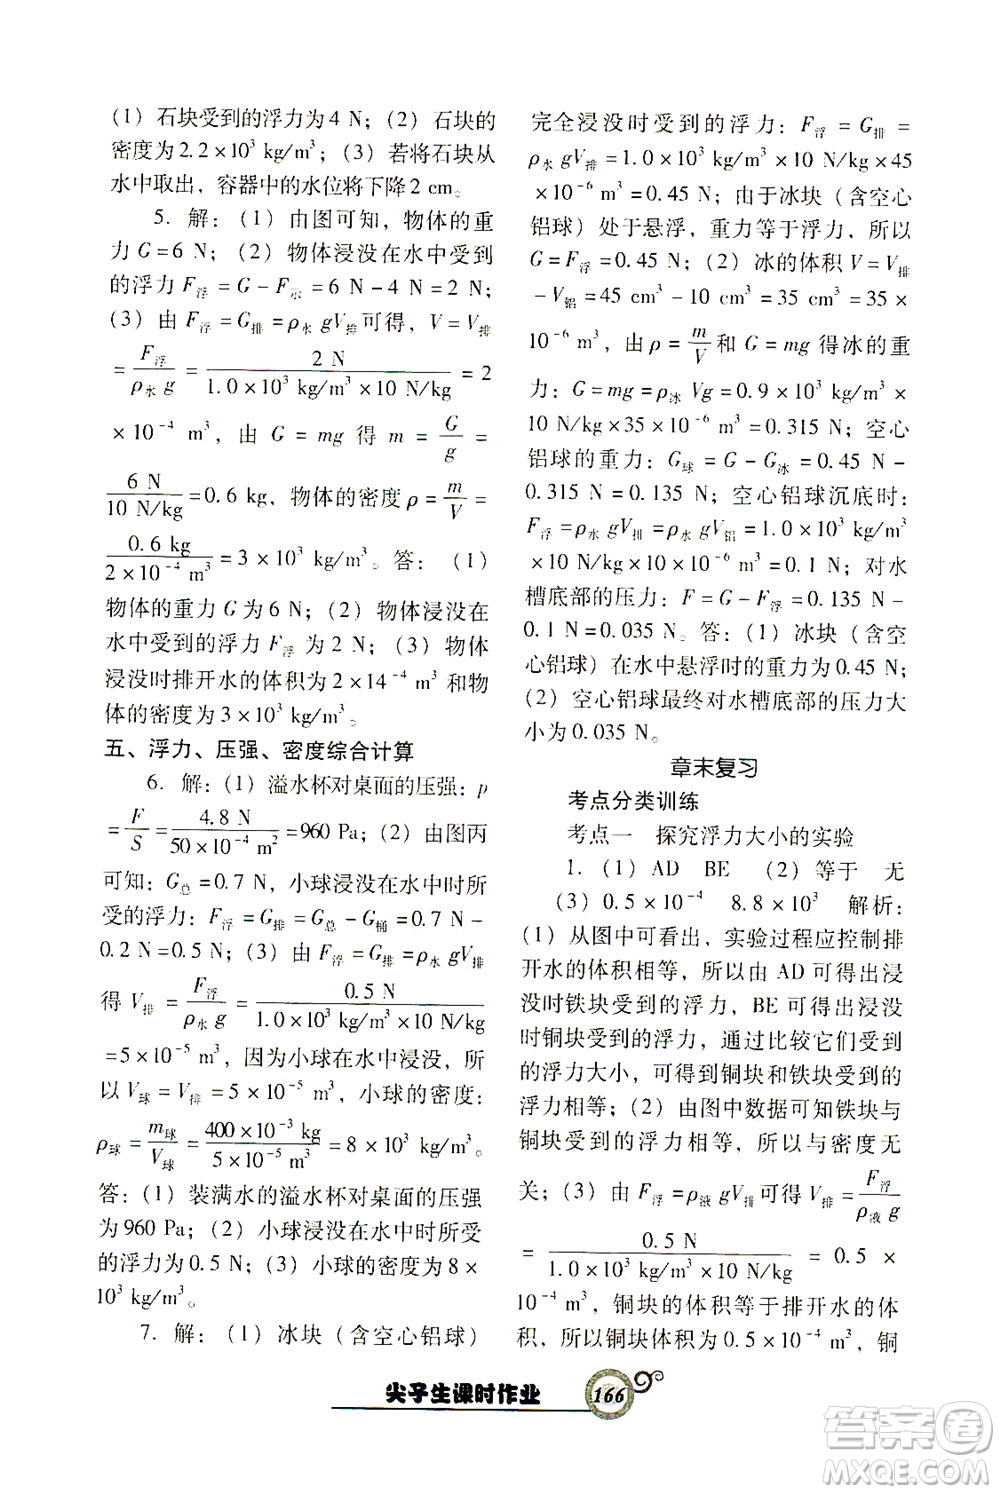 (1) 石块受到的浮力为 4 N；(2) 石块的
密度为 2.2×10³ kg/m³；(3) 若将石块从
水中取出，容器中的水位将下降 2 cm。
5. 解：(1) 由图可知，物体的重
力 G=6 N；(2) 物体浸没在水中受到
的浮力 F浮 = G－F示 = 6 N－4 N = 2 N；
(3) 由 F浮=G排=ρ水 gV排可得，V=V排
= F浮/(ρ水 g) = 2 N/(1.0×10³ kg/m³×10 N/kg) = 2
×10⁻⁴ m³，由 G = mg 得 m = G/g =
6 N/(10 N/kg) =0.6 kg，物体的密度 ρ = m/V =
0.6 kg/(2×10⁻⁴ m³) = 3×10³ kg/m³。答：(1)
物体的重力 G 为 6 N；(2) 物体浸没在
水中受到的浮力 F浮 为 2 N；(3) 物体
浸没时排开水的体积为 2×14⁻⁴ m³ 和物
体的密度为 3×10³ kg/m³。
五、浮力、压强、密度综合计算
6. 解：(1) 溢水杯对桌面的压强：p
= F/S = 4.8 N/(50×10⁻⁴ m²) =960 Pa；(2) 由图丙
可知：G总=0.7 N，小球浸没在水中时所
受的浮力：F浮=G排=G总－G桶=0.7 N－
0.2 N=0.5 N；(3) 由 F浮=G排=ρ水 gV排
得 V排 = F浮/(ρ水 g) = 0.5 N/(1.0×10³ kg/m³×10 N/kg)
=5×10⁻⁵ m³，因为小球在水中浸没，所
以 V球=V排=5×10⁻⁵ m³，小球的密度：
ρ球= m球/V球 = 400×10⁻³ kg/(5×10⁻⁵ m³) =8×10³ kg/m³。
答：(1) 装满水的溢水杯对桌面的压强
为 960 Pa；(2) 小球浸没在水中时所受
的浮力为 0.5 N；(3) 小球的密度为 8×
10³ kg/m³。
7. 解：(1) 冰块（含空心铝球）
完全浸没时受到的浮力：F浮 = G排 =
ρ水 gV排=1.0×10³ kg/m³×10 N/kg×45
×10⁻⁶ m³ = 0.45 N；由于冰块（含空心
铝球）处于悬浮，重力等于浮力，所以
G=F浮=0.45 N；(2) 冰的体积 V=V排
－V铝=45 cm³－10 cm³=35 cm³=35×
10⁻⁶ m³，由 ρ= m/V 和 G=mg 得冰的重
力：G=mg=ρ冰 Vg=0.9×10³ kg/m³×
10 N/kg×35×10⁻⁶ m³=0.315 N；空心
铝球的重力：G球=G－G冰=0.45 N－
0.315 N=0.135 N；空心铝球沉底时：
F浮=ρ水 gV排=ρ水 gV铝=1.0×10³ kg/m³
×10 N/kg×10×10⁻⁶ m³=0.1 N；对水
槽底部的压力：F=G－F浮=0.135 N－
0.1 N=0.035 N。答：(1) 冰块（含空
心铝球）在水中悬浮时的重力为 0.45 N；
(2) 空心铝球最终对水槽底部的压力大
小为 0.035 N。
章末复习
考点分类训练
考点一 探究浮力大小的实验
1. (1) AD BE (2) 等于 无
(3) 0.5×10⁻⁴ 8.8×10³ 解析：
(1) 从图中可看出，实验过程应控制排
开水的体积相等，所以由 AD 可得出浸
没时铁块受到的浮力，BE 可得出浸没
时铜块受到的浮力，通过比较它们受到
的浮力大小，可得到铜块和铁块所受的
浮力相等；(2) 由图中数据可知铁块与
铜块受到的浮力相等，所以与密度无
关；(3) 由 F浮=ρ液 gV排可得 V排= F浮/(ρ液 g)
= 0.5 N/(1.0×10³ kg/m³×10 N/kg) = 0.5 ×
10⁻⁴ m³，铜块的体积等于排开水的体
积，所以铜块体积为 0.5×10⁻⁴ m³，铜
尖子生课时作业 166
答案圈
MXQE.COM